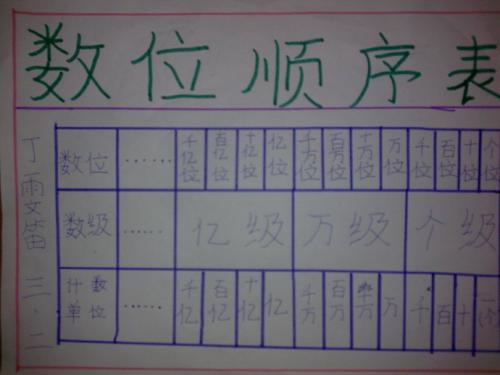 数位顺序表
丁雯笛 三.二
数位 …… 千亿位 百亿位 十亿位 亿位 千万位 百万位 十万位 万位 千位 百位 十位 个位
数级 …… 亿级 万级 个级
计数单位 …… 千亿 百亿 十亿 亿 千万 百万 十万 万 千 百 十 一(个)